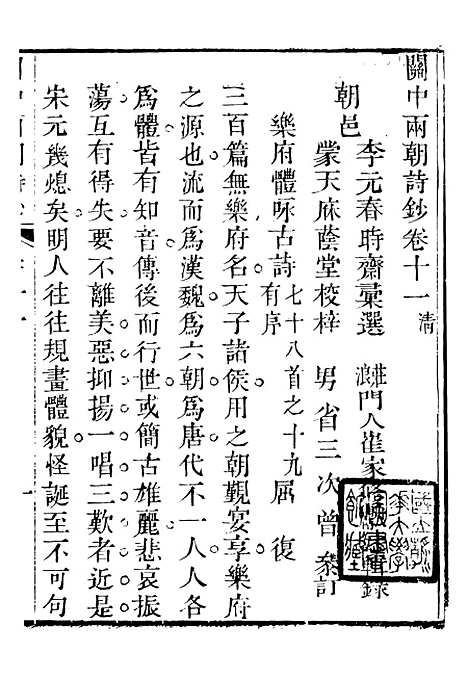 關中兩朝詩鈔卷十一 清
朝邑
李元春時齋彙選 門人崔家 錄
蒙天庥蔭堂校梓 男省三次曾叅訂
樂府體咏古詩 七十八首之十九 有序 屈復
三百篇無樂府名天子諸侯用之朝覲宴享樂府
之源也流而爲漢魏爲六朝爲唐代不一人人各
爲體皆有知音傳後而行世或簡古雄麗悲哀振
蕩互有得失要不離美惡抑揚一唱三歎者近是
宋元幾熄矣明人往往規畫體貌怪誕至不可句
一